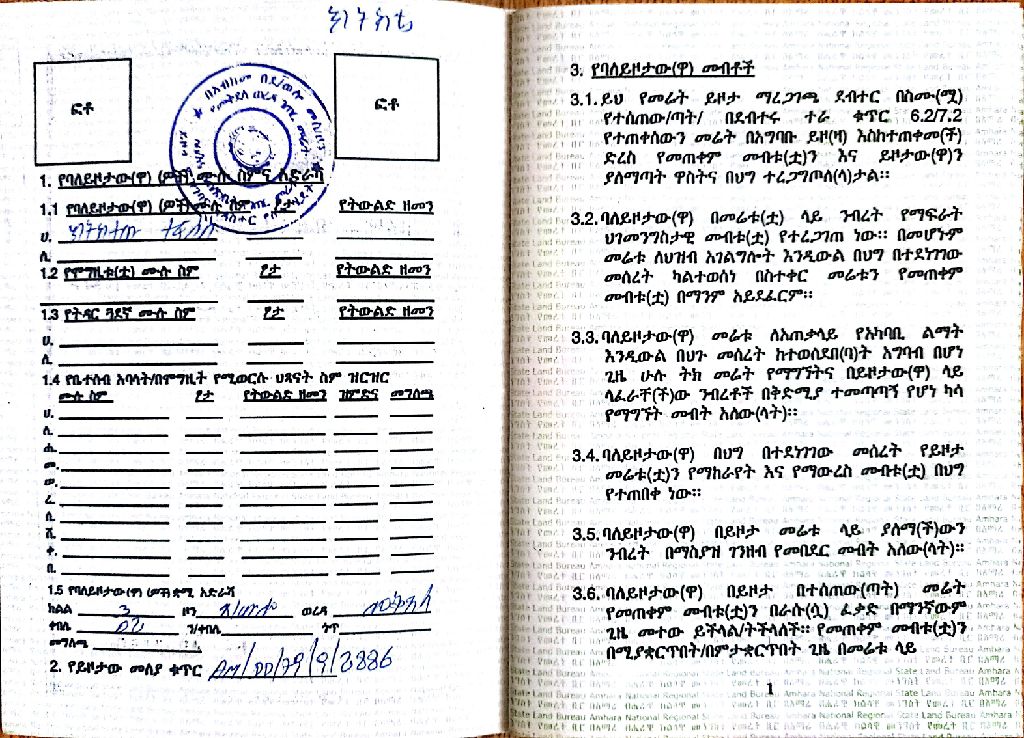 ፎቶ
ፎቶ
1. የባለይዞታው(ዋ) (ዎች) ሙሉ ስም ና አድራሻ
1.1 የባለይዞታው(ዋ) (ዎች) ሙሉ ስም ፆታ የትውልድ ዘመን
ሀ.
ለ.
1.2 የሞግዚቱ(ቷ) ሙሉ ስም ፆታ የትውልድ ዘመን
1.3 የትዳር ጓደኛ ሙሉ ስም ፆታ የትውልድ ዘመን
ሀ.
ለ.
1.4 የቤተሰብ አባላት/በሞግዚት የሚወርሱ ህጻናት ስም ዝርዝር
ሙሉ ስም ፆታ የትውልድ ዘመን ዝምድና መግለጫ
ሀ.
ለ.
ሐ.
መ.
ሠ.
ረ.
ሰ.
ሸ.
ቀ.
በ.
1.5 የባለይዞታው(ዋ) (ዎች) ቋሚ አድራሻ
ክልል 3 ዞን ወረዳ
ቀበሌ 02 ን/ቀበሌ ጎጥ
መግለጫ
2. የይዞታው መለያ ቁጥር
3. የባለይዞታው(ዋ) መብቶች
3.1. ይህ የመሬት ይዞታ ማረጋገጫ ደብተር በስሙ(ሟ)
የተሰጠው/ጣት/ በደብተሩ ተራ ቁጥር 6.2/7.2
የተጠቀሰውን መሬት በአግባቡ ይዞ(ዛ) እስከተጠቀመ(ች)
ድረስ የመጠቀም መብቱ(ቷ)ን እና ይዞታው(ዋ)ን
ያለማጣት ዋስትና በህግ ተረጋግጦለ(ላ)ታል።
3.2. ባለይዞታው(ዋ) በመሬቱ(ቷ) ላይ ንብረት የማፍራት
ህገመንግስታዊ መብቱ(ቷ) የተረጋገጠ ነው። በመሆኑም
መሬቱ ለህዝብ አገልግሎት እንዲውል በህግ በተደነገገው
መሰረት ካልተወሰነ በስተቀር መሬቱን የመጠቀም
መብቱ(ቷ) በማንም አይደፈርም።
3.3. ባለይዞታው(ዋ) መሬቱ ለአጠቃላይ የአካባቢ ልማት
እንዲውል በህጉ መሰረት ከተወሰደበ(ባ)ት አግባብ በሆነ
ጊዜ ሁሉ ትክ መሬት የማግኘትና በይዞታው(ዋ) ላይ
ላፈራቸ(ች)ው ንብረቶች በቅድሚያ ተመጣጣኝ የሆነ ካሳ
የማግኘት መብት አለው(ላት)።
3.4. ባለይዞታው(ዋ) በህግ በተደነገገው መሰረት የይዞታ
መሬቱ(ቷ)ን የማከራየት እና የማውረስ መብቱ(ቷ) በህግ
የተጠበቀ ነው።
3.5. ባለይዞታው(ዋ) በይዞታ መሬቱ ላይ ያለማ(ች)ውን
ንብረት በማስያዝ ገንዘብ የመበደር መብት አለው(ላት)።
3.6. ባለይዞታው(ዋ) በይዞታ በተሰጠው(ጣት) መሬት
የመጠቀም መብቱ(ቷ)ን በራሱ(ሷ) ፈቃድ በማንኛውም
ጊዜ መተው ይችላል/ትችላለች። የመጠቀም መብቱ(ቷ)ን
በሚያቋርጥበት/በምታቋርጥበት ጊዜ በመሬቱ ላይ
1